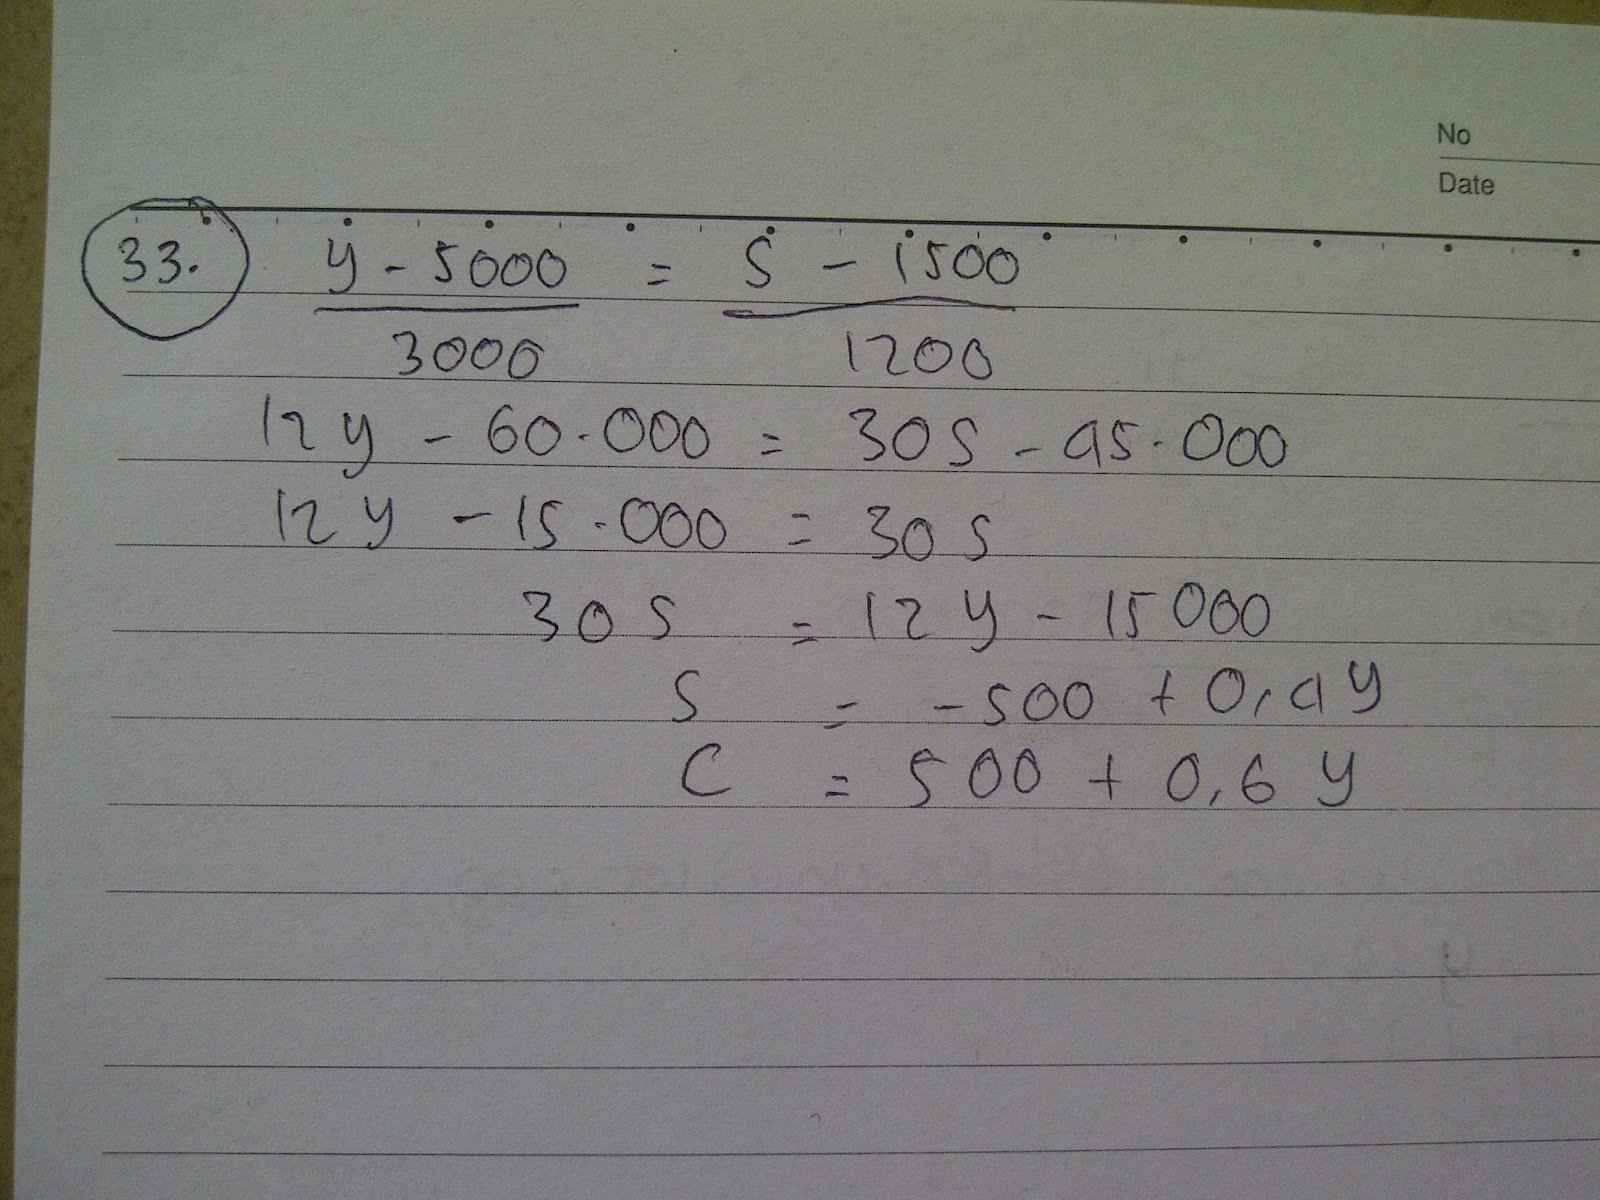 No
Date
33. y - 5000 = S - 1500
3000 1200
12 y - 60.000 = 30 S - 45.000
12 y - 15.000 = 30 S
30 S = 12 y - 15000
S = -500 + 0,4 y
C = 500 + 0,6 y